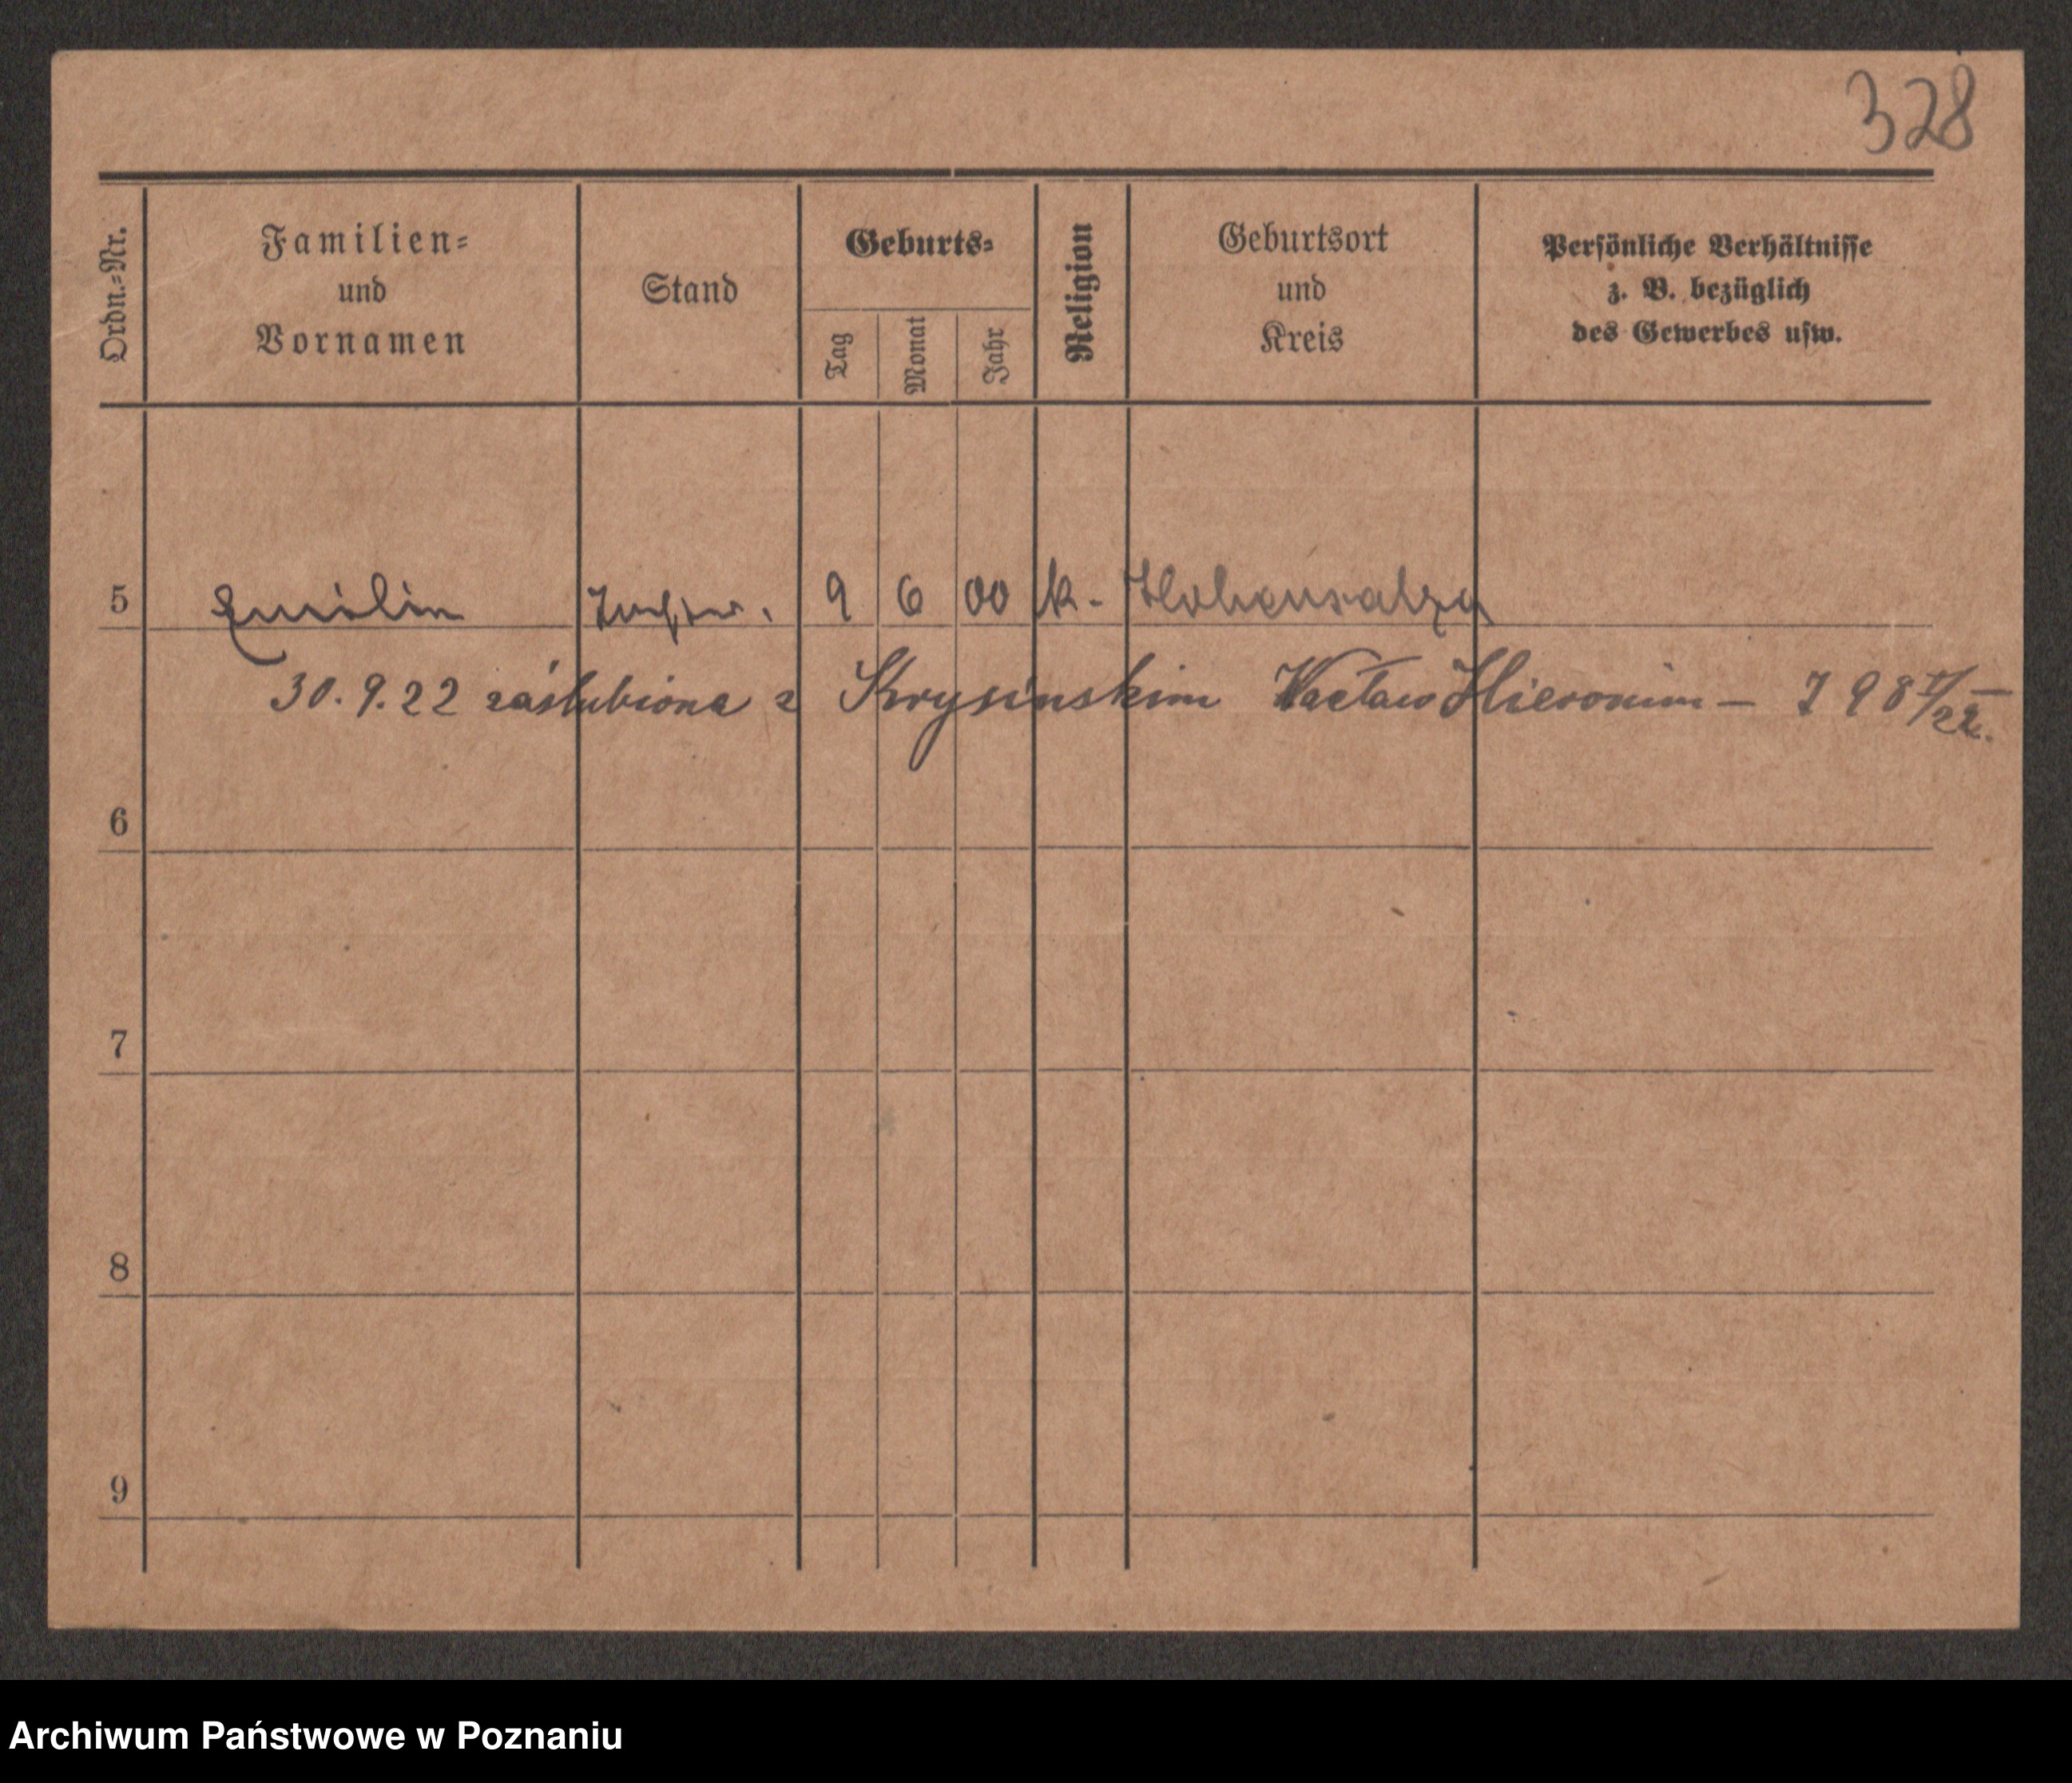 328
Ordn.-Nr.
Familien-
und
Vornamen
Stand
Geburts-
Tag
Monat
Jahr
Religion
Geburtsort
und
Kreis
Persönliche Verhältnisse
z. B. bezüglich
des Gewerbes usw.
5 Emilia Tochter. 9 6 00 k. Hohensalza
30.9.22 zaślubiona z Krysinskim Wacław Hieronim —
6
7
8
9
Archiwum Państwowe w Poznaniu